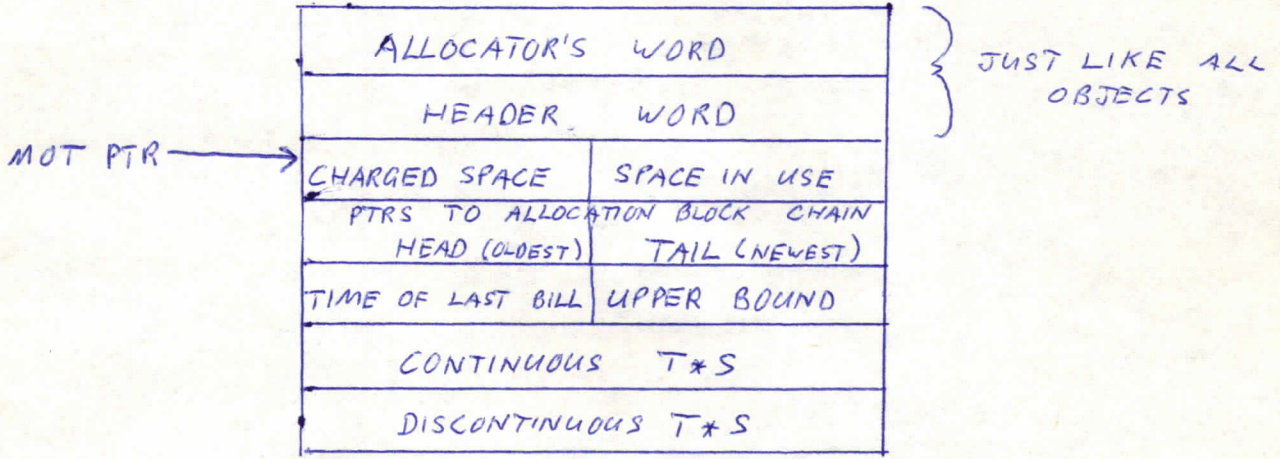 ALLOCATOR'S WORD
JUST LIKE ALL
OBJECTS
HEADER WORD
MOT PTR
CHARGED SPACE SPACE IN USE
PTRS TO ALLOCATION BLOCK CHAIN
HEAD (OLDEST) TAIL (NEWEST)
TIME OF LAST BILL UPPER BOUND
CONTINUOUS T*S
DISCONTINUOUS T*S